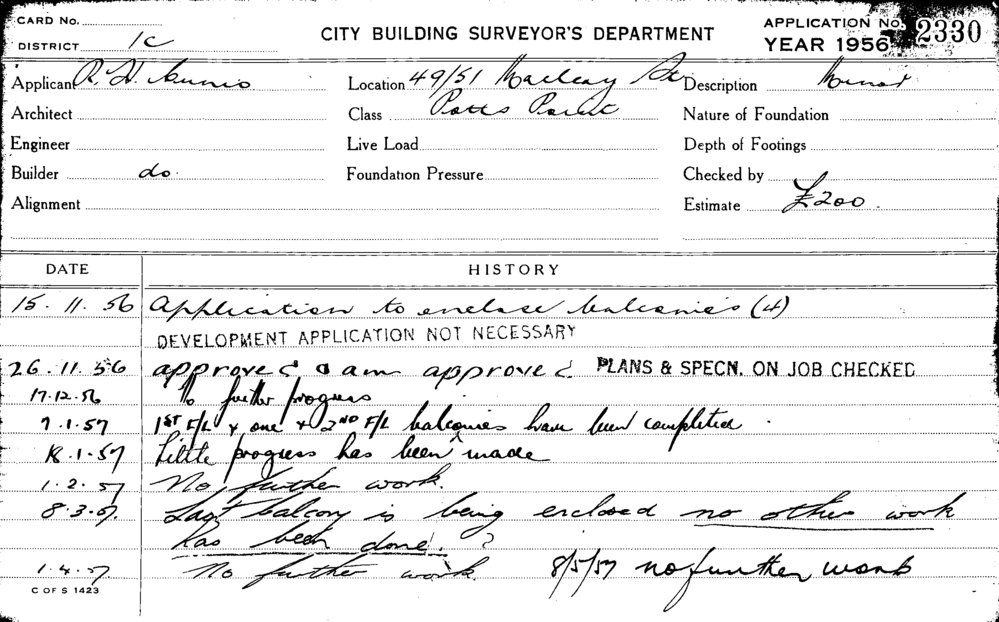 CARD No.
DISTRICT 1C
CITY BUILDING SURVEYOR'S DEPARTMENT
APPLICATION No. 2330
YEAR 1956
Applicant R. H.
Location 49/51 Macleay St
Description Minor
Architect
Class Potts Point
Nature of Foundation
Engineer
Live Load
Depth of Footings
Builder do.
Foundation Pressure
Checked by
Alignment
Estimate £200.
DATE
HISTORY
15. 11. 56 Application to enclose balconies (4)
DEVELOPMENT APPLICATION NOT NECESSARY
26. 11. 56 approved approved PLANS & SPECN. ON JOB CHECKED
17.12.56 No further progress
7.1.57 1ST F/L & one & 2ND F/L balconies have been completed
18.1.57 Little progress has been made
1.2.57 No further work.
8.3.57. Last balcony is being enclosed no other work
has been done. ?
1.4.57 No further work. 8/5/57 no further work
C OF S 1423